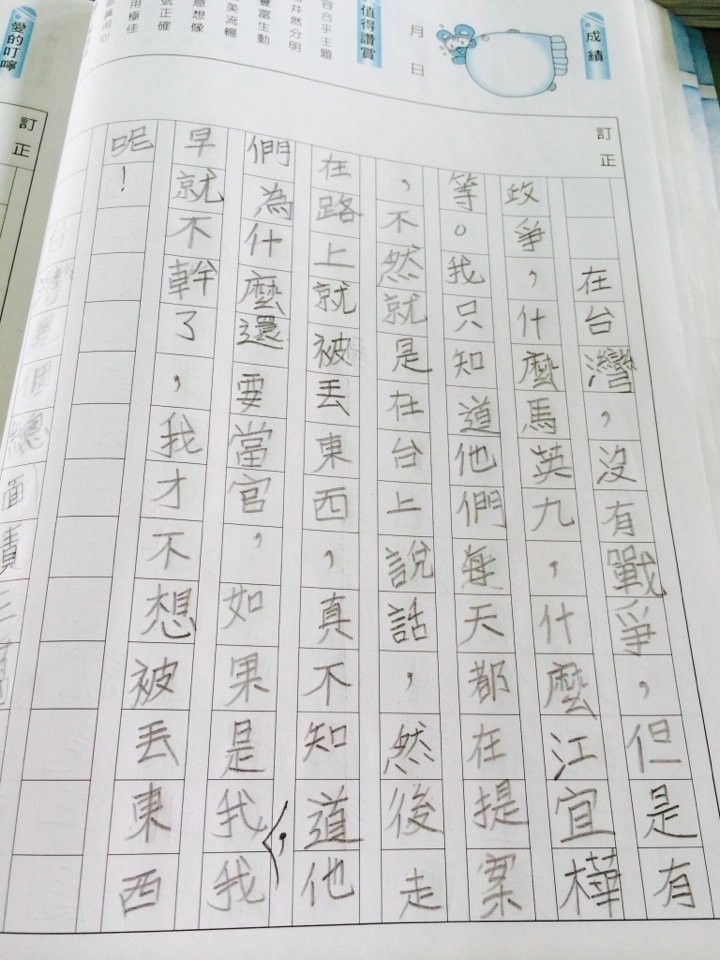 成績
月 日
值得讚賞
容合乎主題
井然分明
豐富生動
美流暢
意想像
號正確
用極佳
愛的叮嚀
訂正
在台灣，沒有戰爭，但是有
政爭，什麼馬英九，什麼江宜樺
等。我只知道他們每天都在提案
，不然就是在台上說話，然後走
在路上就被丟東西，真不知道他
們為什麼還要當官，如果是我，我
早就不幹了，我才不想被丟東西
呢！
訂正